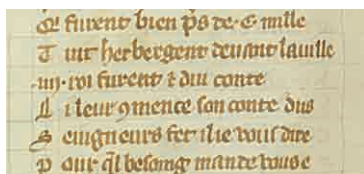 Q̃ furent bien p̃s de .C. mille
T uit herbergent deuant lauille
.iiij. roi furent ⁊ diu conte
L i leur ꝯmence son conte dus
S eigneurs fet il ie vous dire
P our q̃l besoing mande vous e